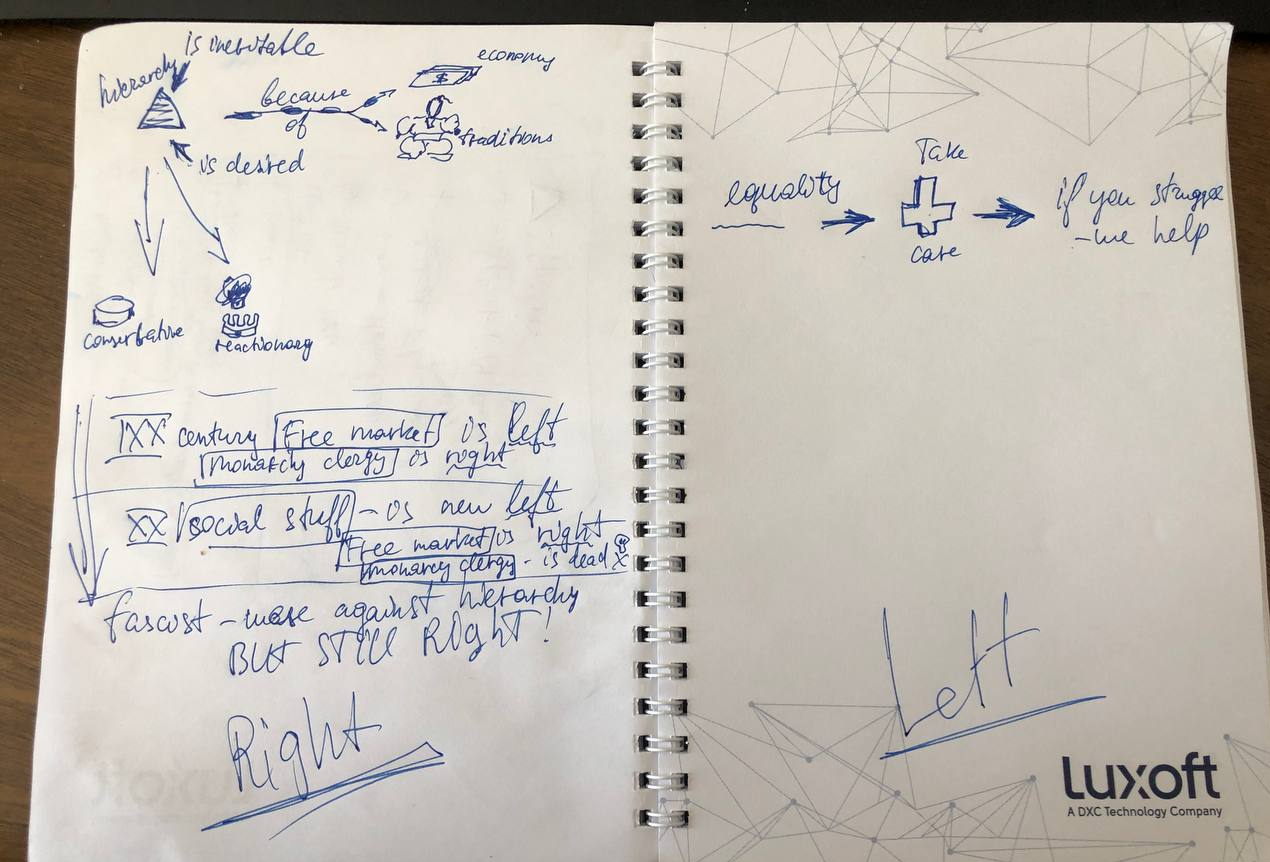 is inevitable
hierarchy
economy
$
because
of
traditions
is desired
conserfative
reactionary
IXX century Free market is left
monarchy clergy is right
XX social stuff - is new left
Free market is right
monarcy clergy - is dead
fascist - were against hierarchy
BUt STill RIght!
Right
Take
equality
if you struggle
- we help
care
Left
Luxoft
A DXC Technology Company